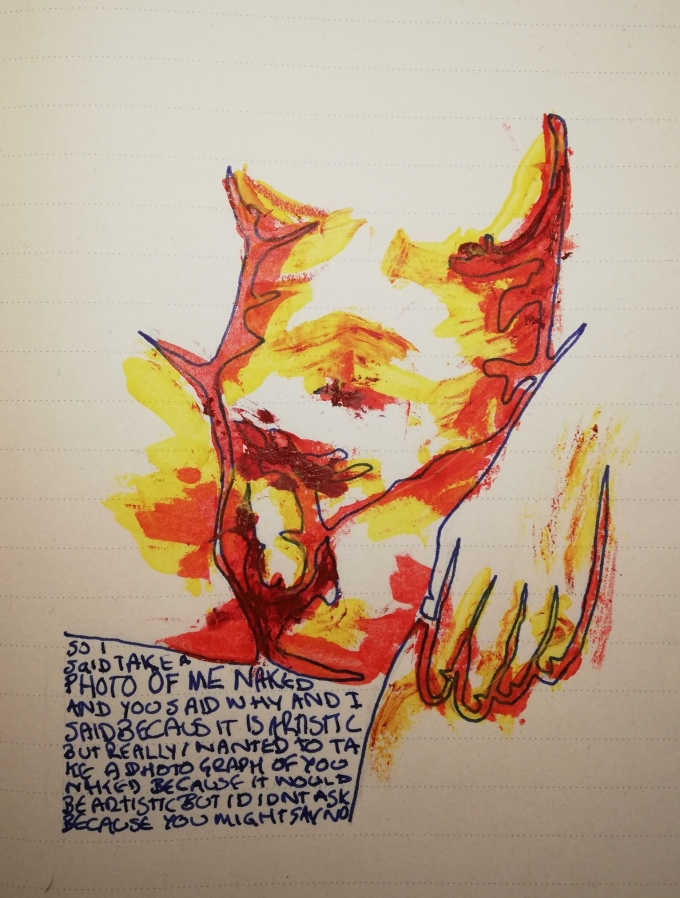 SO I
SaiD TAKE a
PHOTO OF ME NAKED
AND YOU SAID WHY AND I
SAID BECAUS IT IS ARTISTIC
BUT REALLY I WANTED TO TA
KE A PHOTO GRAPH OF YOU
NAKED BECAUSE IT WOULD
BE ARTISTIC BUT I DIDNT ASK
BECAUSE YOU MIGHT SAY NO